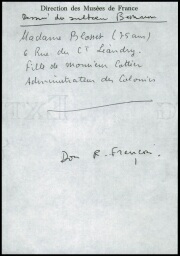 Direction des Musées de France
Madame Blosset (75 ans)
6 Rue du Ct Léandry.
fille de Monsieur Cottier
Administrateur des Colonies
Don R. Françoi.